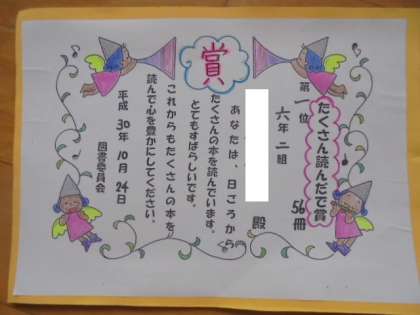 賞
たくさん読んだで賞
第一位 56冊
六年二組
殿
あなたは、日ごろから
たくさんの本を読んでいます。
とてもすばらしいです。
これからもたくさんの本を
読んで心を豊かにしてください。
平成30年10月24日
図書委員会